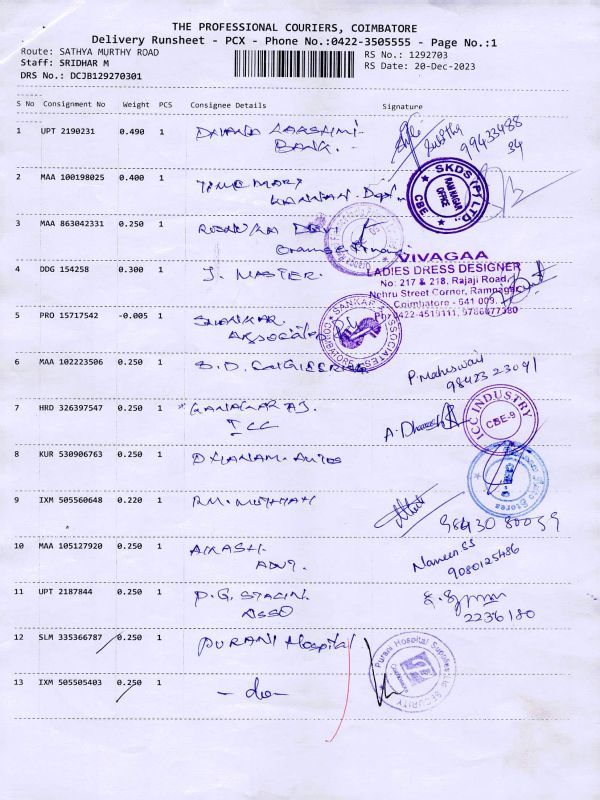 THE PROFESSIONAL COURIERS, COIMBATORE
Delivery Runsheet - PCX - Phone No.:0422-3505555 - Page No.:1
Route: SATHYA MURTHY ROAD RS No.: 1292703
Staff: SRIDHAR M RS Date: 20-Dec-2023
DRS No.: DCJB129270301
S No Consignment No Weight PCS Consignee Details Signature
1 UPT 2190231 0.490 1
BANK. 99433488
34
2 MAA 100198025 0.400 1
SKDS (P) LTD.
RAM NAGAR
OFFICE
CBE
3 MAA 863042331 0.250 1
4 DDG 154258 0.300 1 J. MASTER.
VIVAGAA
LADIES DRESS DESIGNER
No: 217 & 218, Rajaji Road,
Nehru Street Corner, Ramnagar
Coimbatore - 641 009.
Ph: 0422-4519111, 9786677380
5 PRO 15717542 -0.005 1 SHANKAR
ASSOCIATES
SANKAR ASSOCIATES
COIMBATORE
6 MAA 102223506 0.250 1 S.D. ENGINEERING
P. Maheswari
98423 23041
7 HRD 326397547 0.250 1 KANAGARAJ.
ICC
A. Dharesh
ICC INDUSTRY
CBE-9
8 KUR 530906763 0.250 1 DHANAM. AUTOS
Stores
9 IXM 505560648 0.220 1 RM. MUTHIAH
98430 80059
10 MAA 105127920 0.250 1 AKASH.
ADVT.
Naveen SS
9080125486
11 UPT 2187844 0.250 1 P.G. STALIN
ASSO
2236180
12 SLM 335366787 0.250 1 PURANI Hospital
Purani Hospital Supplies
SECURITY
13 IXM 505505403 0.250 1 - do -